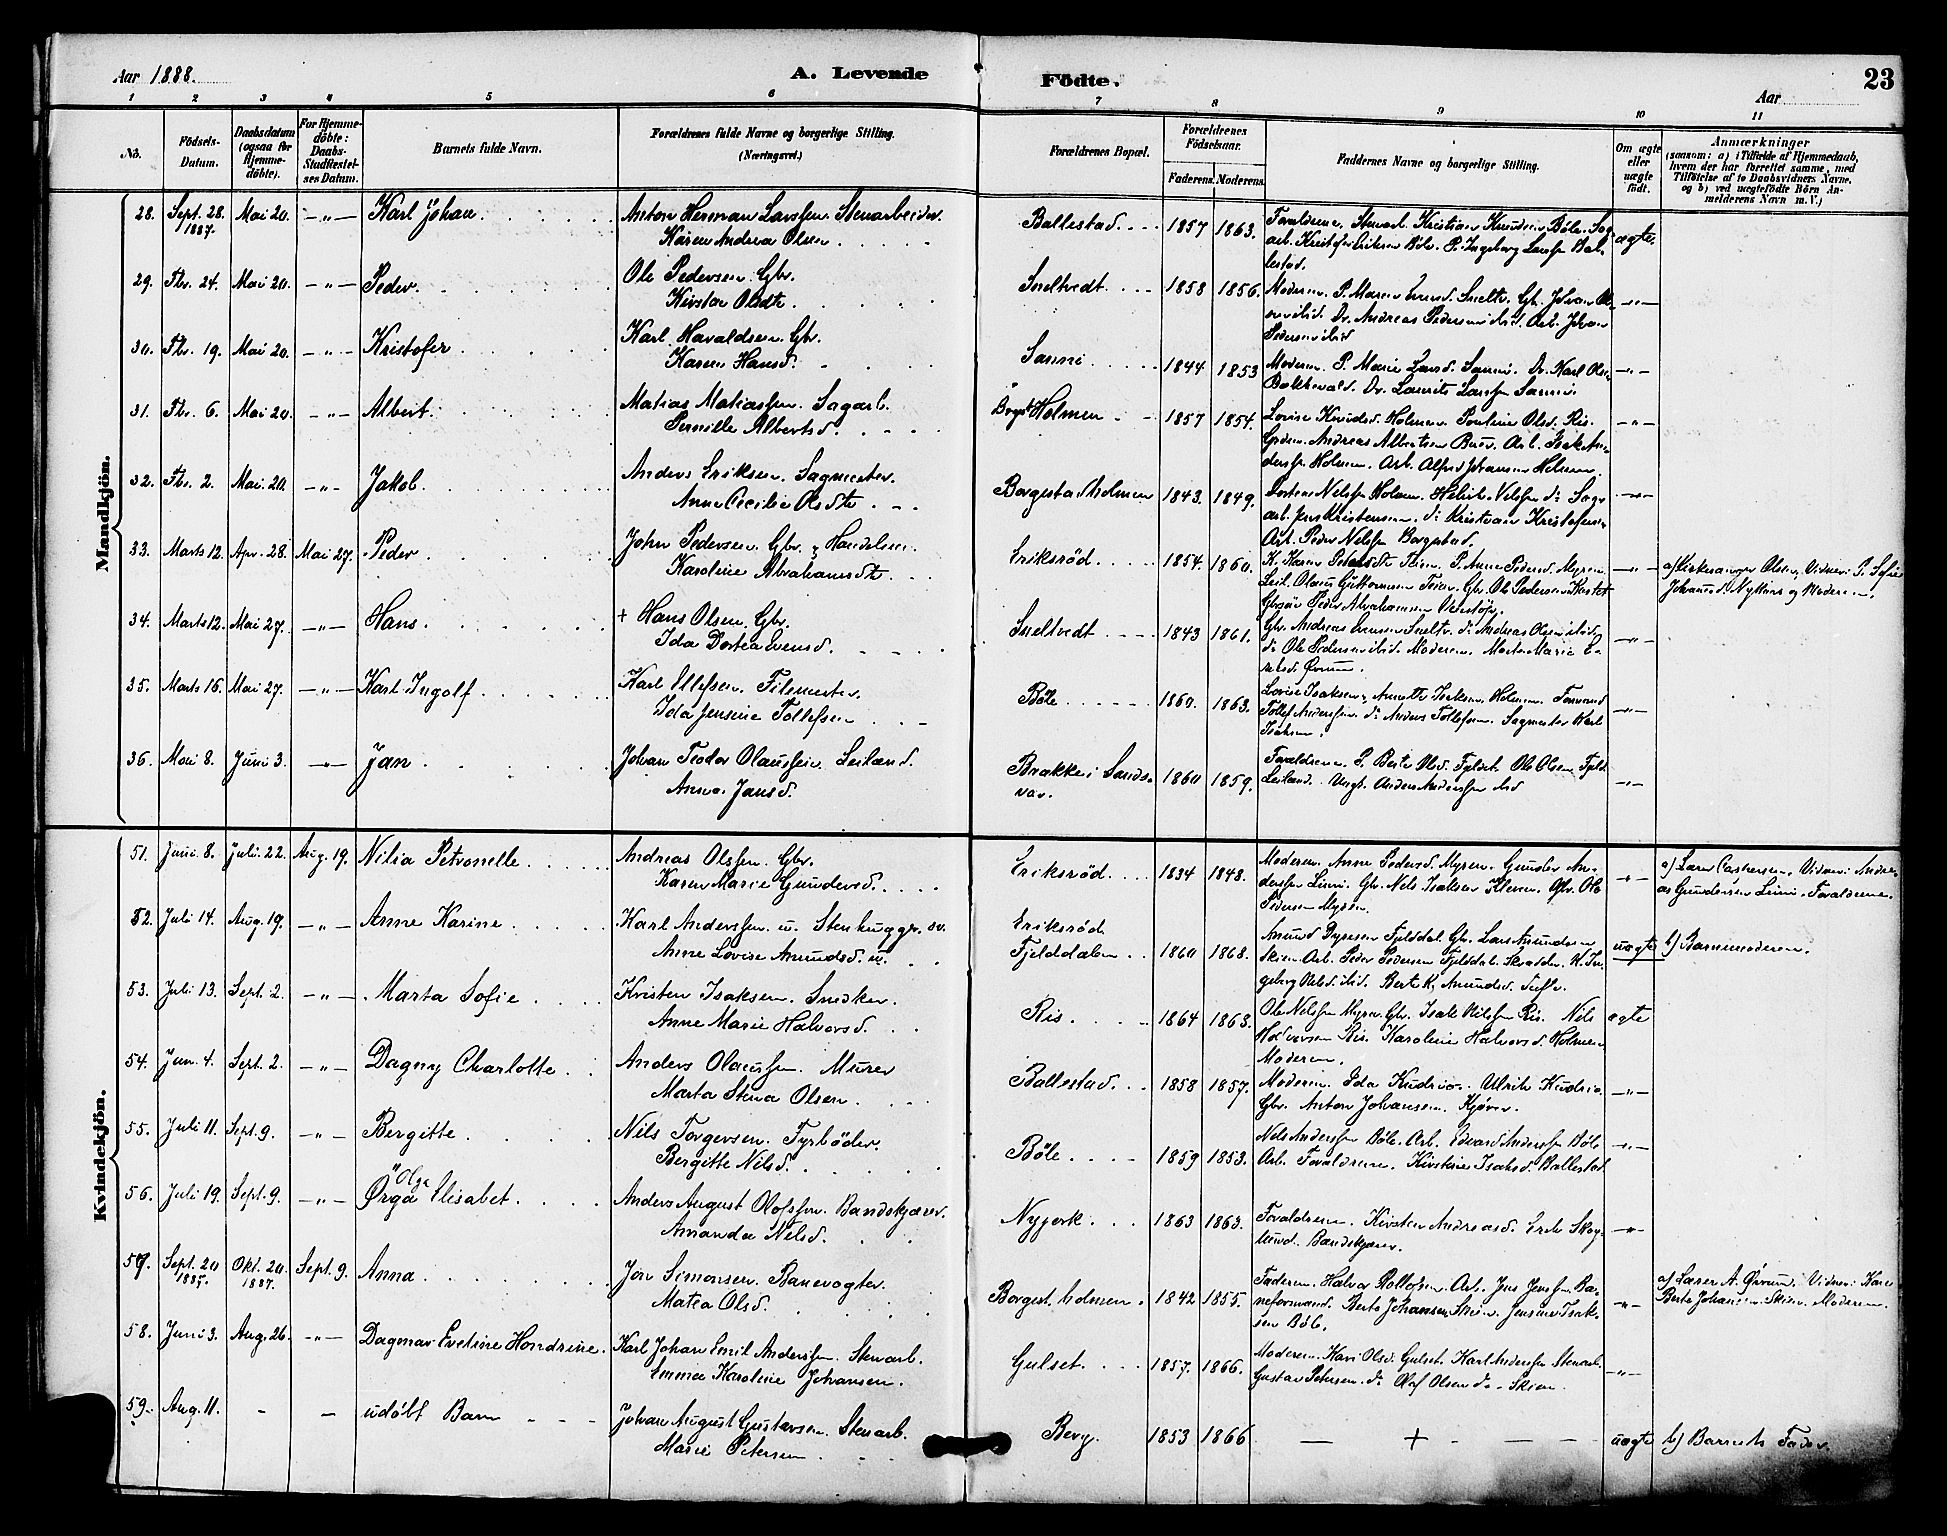 Aar 1888.
A. Levende
Födte.
Aar
23
1 2 3 4 5 6 7 8 9 10 11
No.
Födsels-Datum.
Daabsdatum (ogsaa for Hjemmedöbte).
For Hjemmedöbte: Daabs-Stadfæstelses Datum.
Barnets fulde Navn.
Forældrenes fulde Navne og borgerlige Stilling.
(Næringsvei.)
Forældrenes Bopæl.
Forældrenes Födselsaar.
Faderens. Moderens.
Faddernes Navne og borgerlige Stilling.
Om ægte eller uægte födt.
Anmærkninger
(saasom: a) i Tilfælde af Hjemmedaab, hvem der har forrettet samme, med Tilföielse af to Daabsvidners Navne, og b) ved uægtefödte Börn Anmelderens Navn m. V.)
Mandkjön.
28. Sept. 28. 1887. Mai 20. -"- Karl Johan. Anton Herman Larssen. Stenarbeider. Karen Andrea Olsen. Ballestad. 1857 1863. Forældrene. Stenarb. Kristian Knudsen Böle. Sagarb. Kristofer Eriksen Böle. P. Ingeborg Larssen Ballestad. ægte.
29. Fbr. 24. Mai 20. -"- Peder. Ole Pedersen. Gbr. Kirsten Olsdtr. Sneltvedt. 1858 1856. Moderen. P. Maren -"-
30. Fbr. 19. Mai 20. -"- Kristofer. Karl Havaldsen. Gbr. Karen Hansd. Sanni. 1844 1853 Moderen. P. Marie Larsd. Sanni. Dr. Karl Ols. Bakkevold. Dr. Laurits Larssen Sanni. -"-
31. Fbr. 6. Mai 20. -"- Albert. Matias Matiassen. Sagarb. Pernille Albertsd. Borgest. Holmen 1857 1854. Lovise Knudsd. Holmen. Pauline Olsd. Ris. Andreas Albertsen Arb. Isak Anderssen Holmen. Arb. Alfred Johansen Holmen. -"-
32. Fbr. 2. Mai 20. -"- Jakob. Anders Eriksen. Sagmester. Anne Cecilie Olsdtr. Borgestadholmen 1843. 1849. Nilssen Holmen. Nilssen do Sagarb. Jens Kristensen. do Kristian Kristofers. Arb. Peder Nilssen Borgestad. -"-
33. Marts 12. Apr. 28. Mai 27. Peder. John Pedersen. Gbr. & Handelsm. Karoline Abrahamsdtr. Eriksröd. 1854. 1860. K. Karen Petersdtr. P. Anne Pedersd. Myren. Leil. Olaus Guttormsen Gbr. Ole Pedersen Peder Abrahamsen -"- a) Kirkesanger Olsen. Vidner: P. Sofie Johannesd. og Moderen.
34. Marts 12. Mai 27. -"- Hans. + Hans Olsen. Gbr. Ida Dortea Evensd. Sneltvedt 1843 1861. Gbr. Andreas Evensen Sneltv. do Andreas Olsen ibid. do Ole Pedersen ibid. Moderen. Marte Marie -"-
35. Marts 16. Mai 27. -"- Karl Ingolf. Karl Ellefsen. Filemester. Ida Jensine Tollefsen. Böle. 1860. 1863. Lovise Isaksen, Annette Isaksen Holmen. Formand Tollef Anderssen. do Anders Tollefsen. Sagmester Karl Isaksen. -"-
36. Mai 8. Juni 3. -"- Jan. Johan Teodor Olaussen. Leilænd. Anne Jansd. Brække i Sandsvær. 1860 1859. Forældrene. P. Berte Olsd. Fjeldet. Ole Olsen Leilænd. Ungk. Anders Anderssen ibid -"-
Kvindekjön.
51. Juni 8. Juli 22. Aug. 19. Nilia Petronelle. Andreas Olssen. Gbr. Karen Marie Gundersd. Eriksröd. 1834 1848. Moderen. Anne Pedersd. Myren. Gunder Anderssen Gbr. Nils Isaksen Kleven. Gbr. Ole Pedersen Myren. -"- a) Lærer Castersen. Vidner: Andreas Gundersen Forældrene.
52. Juli 14. Aug. 19. -"- Anne Karine. Karl Anderssen. u. Stenhugger. sv. Anne Lovise Amundsd. u. Eriksröd. Fjelddalen 1860 1868. Amund Fjelddal. Gbr. Lars Amundsen Skien. Arb. Peder Pedersen Fjelddal. K. Ingeborg Olsd. ibid. Berte K. Amundsd. uægte b) Barnemoderen.
53. Juli 13. Sept. 2. -"- Marta Sofie. Kristen Isaksen. Snedker. Anne Marie Halvorsd. Ris. 1864 1863. Ole Nilssen Myren. Gbr. Isak Nilssen Ris. Nils Halvorsen Ris. Karoline Halvorsd. Holmen. Moderen. ægte
54. Juni 4. Sept. 2. -"- Dagny Charlotte. Anders Olaussen. Murer Marta Stena Olsen. Ballestad. 1858 1857. Moderen. Ida Ulrik Gbr. Anton Johansen. -"-
55. Juli 11. Sept. 9. -"- Bergitte. Nils Torgersen. Fyrböder. Bergitte Nilsd. Böle. 1859 1853. Nils Anderssen Böle. Arb. Edvard Anderssen Böle. Arb. Forældrene. Kirstine Isaksd. Ballestad -"-
56. Juli 19. Sept. 9. -"- Olga Örga Elisabet. Anders August Olofssen. Bandskjærer. Amanda Nilsd. Nyjork. 1863 1863. Forældrene. Kirsten Andreasd. Erik Skoglund. Bandskjærer. -"-
57. Sept. 20 1887. Okt. 20. 1887. Sept. 9. Anna. Jon Simonsen. Banevogter. Matea Olsd. Borgest. holmen. 1842 1855. Faderen. Halvor Arb. Jens Jenssen Baneformand. Berte Johansen Skien. Jensine Isaksen Böle. -"- a) Lærer A. Örum. Vidner: Berte Johansen Skien. Moderen.
58. Juni 3. Aug. 26. -"- Dagmar Eveline Hendrine. Karl Johan Emil Anderssen. Stenarb. Emma Karoline Johansen. Gulset. 1857. 1866. Moderen. Kari Olsd. Gulset. Karl Anderssen Stenarb. Gustav Petersen. do Olof Olsen do Skien. -"-
59. Aug. 11. - - udöbt Barn - - - Johan August Gustavsen. Stenarb. Marie Petersen Berg. 1853 1866 — + - — — uægte b) Barnets Fader.